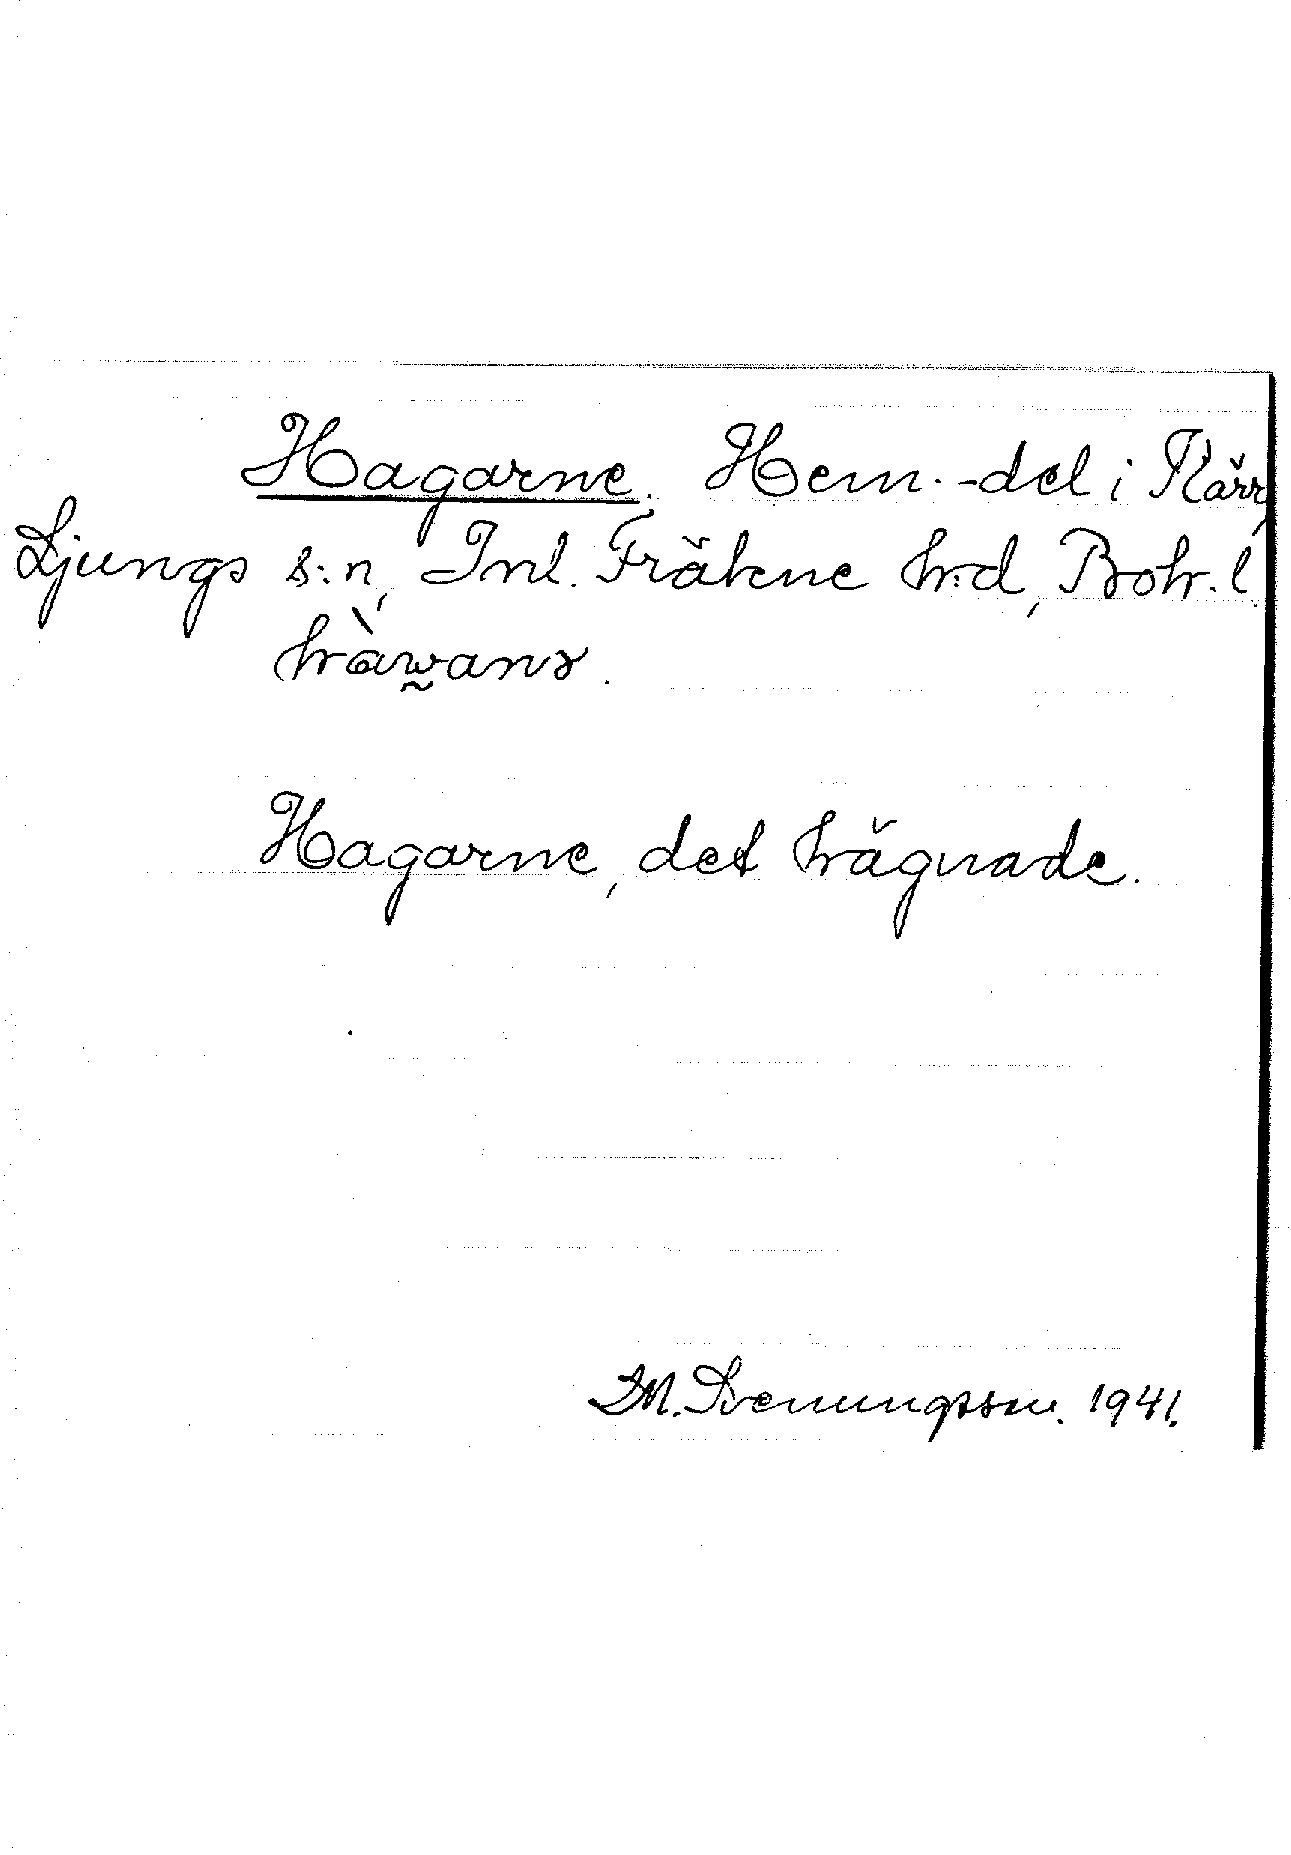 Hagarne. Hem.-del i Kärr,
Ljungs s:n, Inl. Fräkne h:d, Boh. l.
hàw̰anɤ.
Hagarne, det hägnade.
M. Svenungsson. 1941.